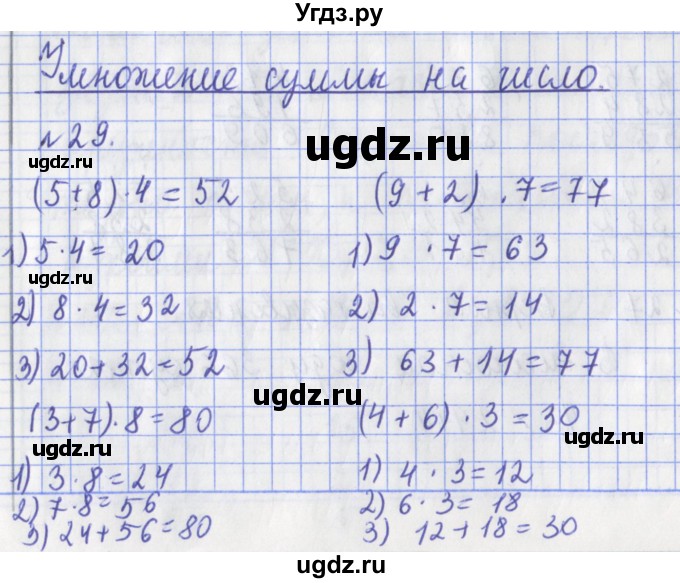 Угдз.ру
Умножение суммы на число.
№29.
ugdz.ru
ugdz.ru
(5+8)·4=52
(9+2)·7=77
1) 5·4=20
1) 9·7=63
ugdz.ru
2) 8·4=32
2) 2·7=14
3) 20+32=52
3) 63+14=77
ugdz.ru
(3+7)·8=80
(4+6)·3=30
ugdz.ru
ugdz.ru
1) 3·8=24
1) 4·3=12
2) 7·8=56
2) 6·3=18
3) 24+56=80
3) 12+18=30
ugdz.ru